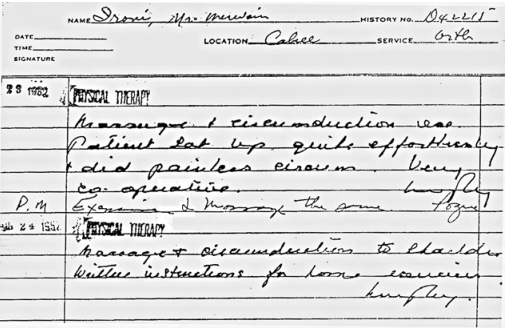 NAME Mr. HISTORY NO. D42215
DATE
TIME
LOCATION Calvee SERVICE Orth
SIGNATURE
23 1952 PHYSICAL THERAPY
Massage & circumduction
Patient sat up quite effortlessly
& did painless circum. Very
co-operative.
P.M & Massage the same
24 195 PHYSICAL THERAPY
Massage & circumduction to shoulder
Written instructions for home exercises